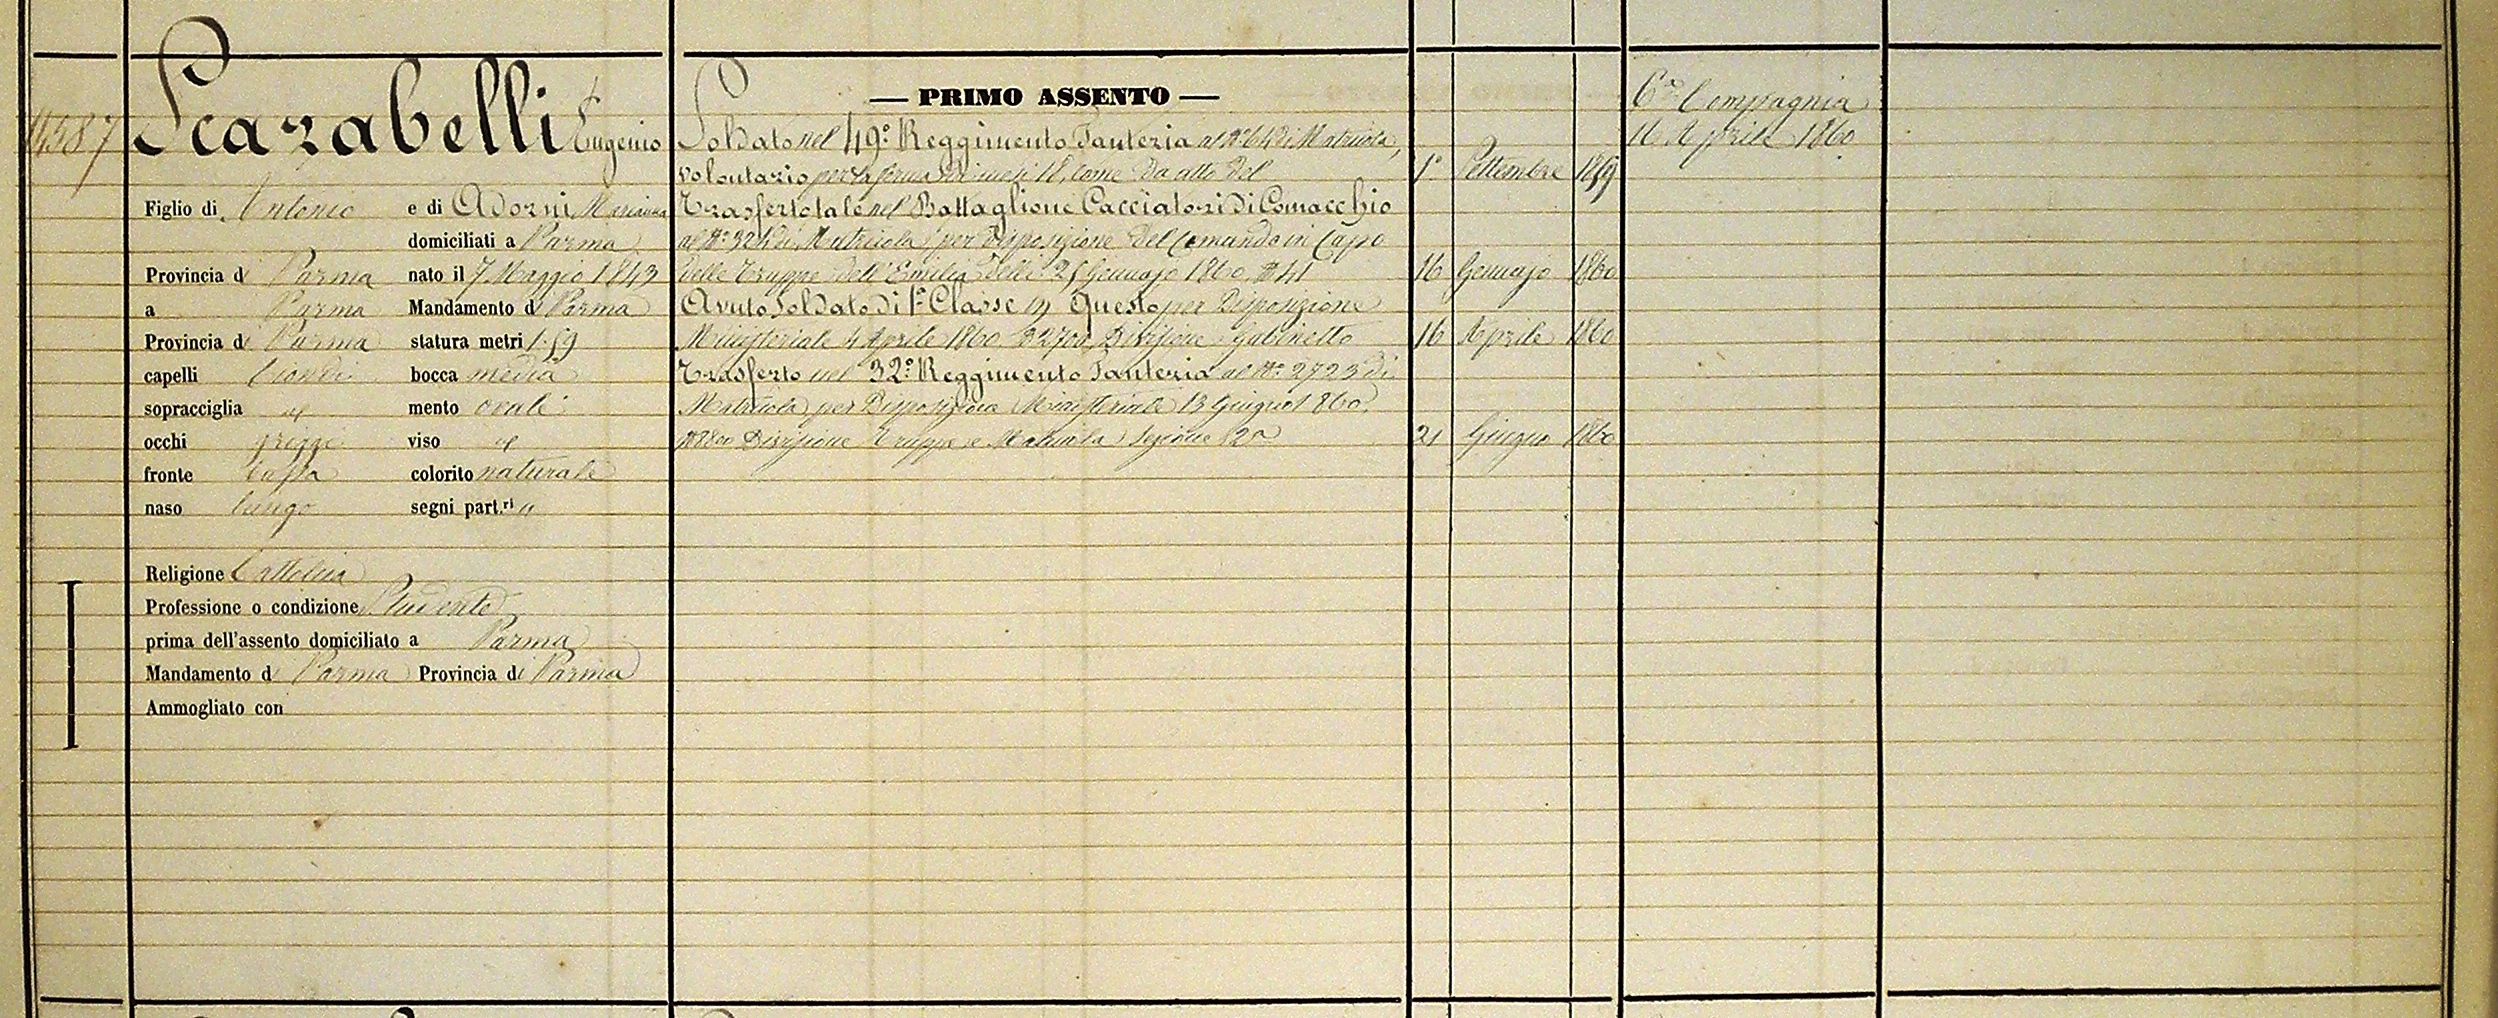 PRIMO ASSENTO
14587 Scarabelli Eugenio
Soldato nel 49º Reggimento Fanteria al Nº 64 di Matricola,
volontario per la ferma di mesi 18, come da atto del 1º Settembre 1859
Figlio di Antonio e di Adorni Marianna
Trasferto tale nel Battaglione Cacciatori di Comacchio
domiciliati a Parma
al Nº 324 di Matricola per disposizione del Comando in Capo
Provincia di Parma nato il 7 Maggio 1843
delle Truppe dell'Emilia delli 25 Gennajo 1860, Nº 41 16 Gennajo 1860
a Parma Mandamento di Parma
Avuto Soldato di 1ª Classe in Questo per Disposizione
Provincia di Parma statura metri 1.59
Ministeriale 4 Aprile 1860 Nº 2700, Divisione Gabinetto 16 Aprile 1860
capelli biondi bocca media
Trasferto nel 32º Reggimento Fanteria al Nº 2723 di
sopracciglia id mento ovale
Matricola per Disposizione Ministeriale 13 Giugno 1860,
occhi griggi viso id
Divisione Truppe e Matricola Sezione 2ª 21 Giugno 1860
fronte bassa colorito naturale
naso lungo segni part.ri "
Religione Cattolica
Professione o condizione Studente
prima dell'assento domiciliato a Parma
Mandamento di Parma Provincia di Parma
Ammogliato con
6ª Compagnia
16 Aprile 1860